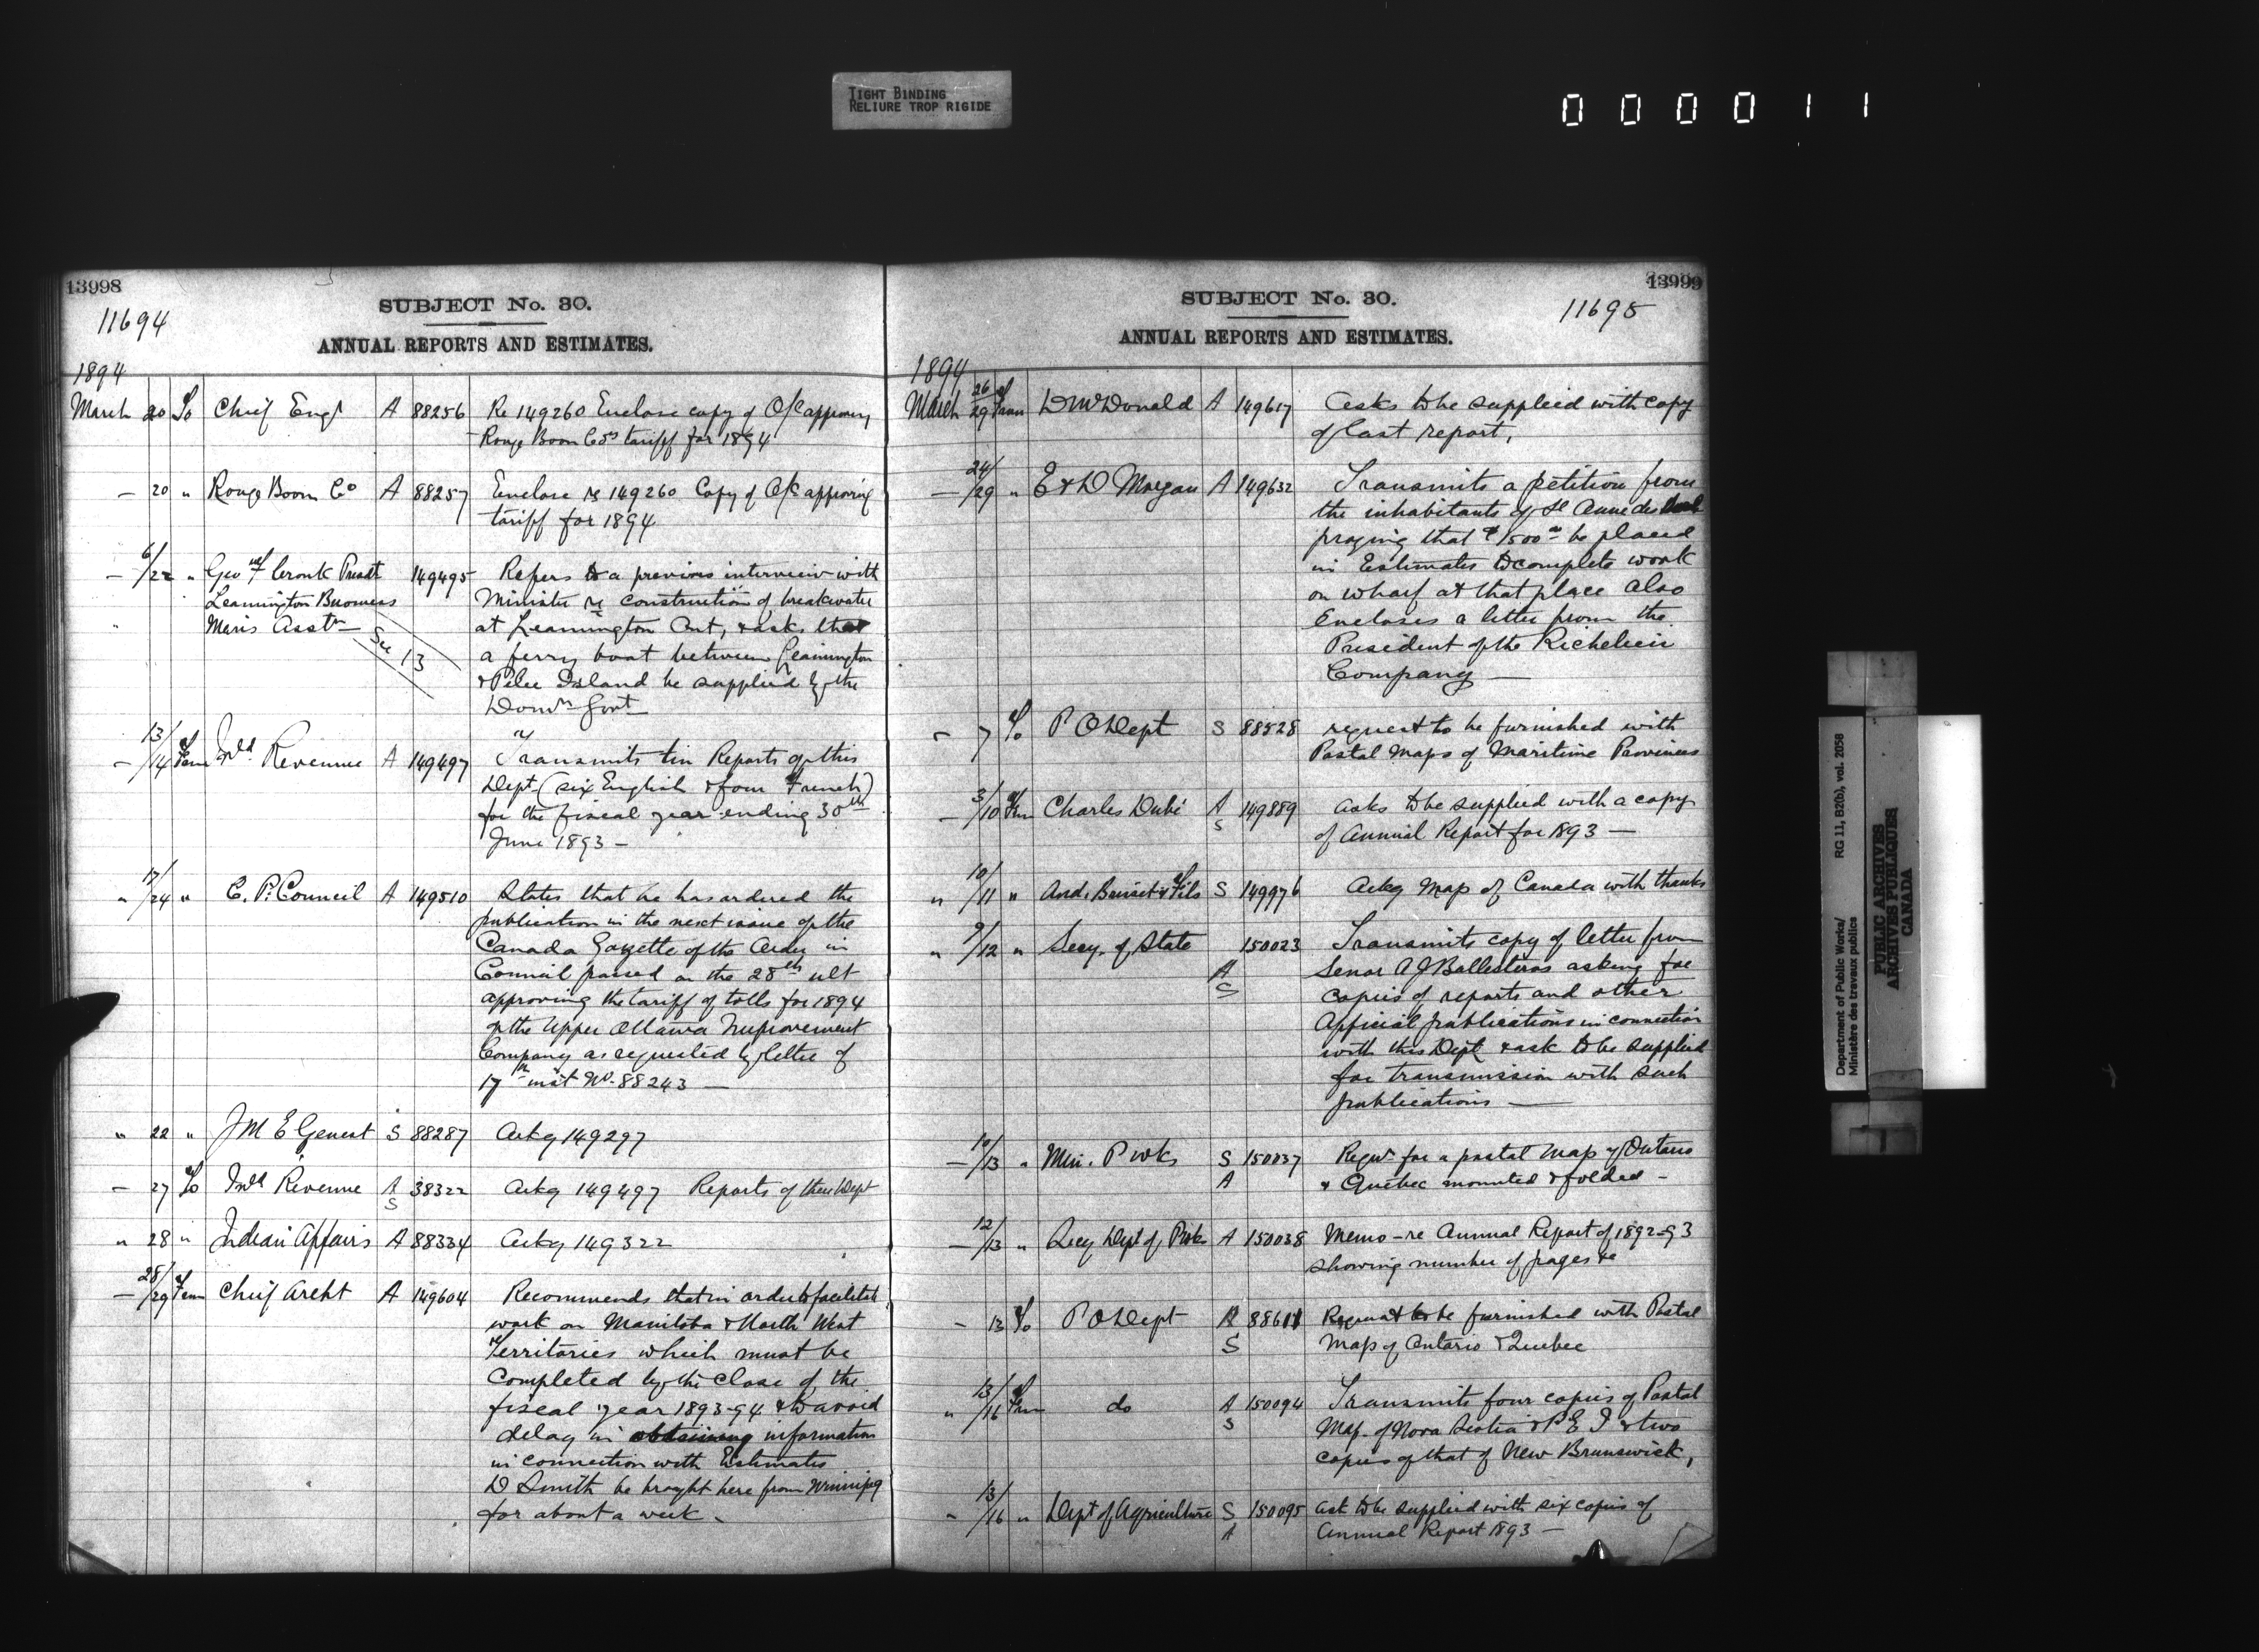 TIGHT BINDING
RELIURE TROP RIGIDE
000011
13998
11694
SUBJECT No. 30.
ANNUAL REPORTS AND ESTIMATES.
1894
March 20 To Chief Engr A 88256 Re 149260 Enclose copy of O/C approving
Rouge Boom Cos tariff for 1894
— 20 " Rouge Boom Co A 88257 Enclose re 149260 Copy of O/C approving
tariff for 1894
— 6/22 " Geo F Cronk Presdt 149495 Refers to a previous interview with
Leamington Business Minister re construction of breakwater
" Men's Asstn at Leamington Ont, & asks that
See 13 a ferry boat between Leamington
& Pelee Island be supplied by the
Domn Govt
— 13/14 From Inld. Revenue A 149497 Transmits ten Reports of this
Dept (six English & four French)
for the fiscal year ending 30th
June 1893 —
" 17/24 " C. P. Council A 149510 States that he has ordered the
publication in the next issue of the
Canada Gazette of the Order in
Council passed on the 28th ult
approving the tariff of tolls for 1894
of the Upper Ottawa Improvement
Company as requested by letter of
17th inst No. 88243 —
" 22 " J M E Genest S 88287 Ackg 149297
— 27 To Inld Revenue A 38322 Ackg 149497 Reports of their Dept
S
" 28 " Indian Affairs A 88334 Ackg 149322
— 28/29 From Chief Archt A 149604 Recommends that in order to facilitate
work on Manitoba & North West
Territories which must be
completed by the close of the
fiscal year 1893-94 & to avoid
delay in obtaining information
in connection with Estimates
D Smith be brought here from Winnipeg
for about a week —
13999
11695
SUBJECT No. 30.
ANNUAL REPORTS AND ESTIMATES.
1894
March 26/29 From D McDonald A 149617 Asks to be supplied with copy
of last report,
— 24/29 " E & D Morgan A 149632 Transmits a petition from
the inhabitants of St Anne des
praying that $1500 be placed
in Estimates to complete work
on wharf at that place also
Encloses a letter from the
President of the Richelieu
Company —
— 7 To P O Dept S 88528 request to be furnished with
Postal Maps of Maritime Provinces
— 3/10 From Charles Dubé A 149889 asks to be supplied with a copy
S of Annual Report for 1893 —
" 10/11 " And. Brisset & Fils S 149976 Ackg Map of Canada with thanks
" 9/12 " Secy. of State 150023 Transmits copy of letter from
A Senor A J Ballesteros asking for
S copies of reports and other
Official publications in connection
with this Dept & ask to be supplied
for transmission with such
publications —
— 10/13 " Min. P Wks S 150037 Reqn for a postal map of Ontario
A & Quebec mounted & folded —
— 12/13 " Secy Dept of P Wks A 150038 Memo-re Annual Report of 1892-93
showing number of pages &c
— 13 To P O Dept A 88611 Request to be furnished with Postal
S Map of Ontario & Quebec
" 13/16 From do A 150094 Transmits four copies of Postal
S Map of Nova Scotia & P E I & two
copies of that of New Brunswick,
" 13/16 " Dept of Agriculture S 150095 ask to be supplied with six copies of
A Annual Report 1893 —
Department of Public Works/ RG 11, B2(b), vol. 2058
Ministère des travaux publics
PUBLIC ARCHIVES
ARCHIVES PUBLIQUES
CANADA